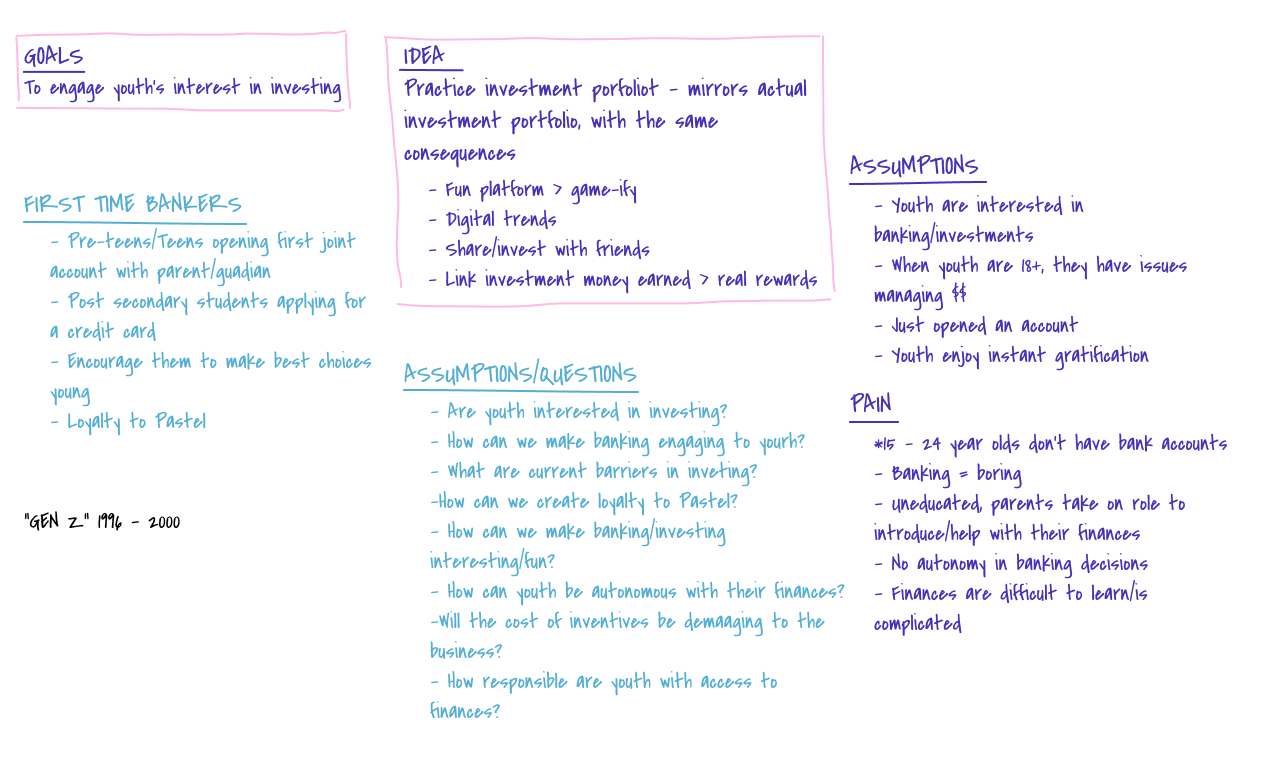 GOALS
To engage youth's interest in investing
FIRST TIME BANKERS
- Pre-teens/Teens opening first joint
account with parent/guadian
- Post secondary students applying for
a credit card
- Encourage them to make best choices
young
- Loyalty to Pastel
"GEN Z" 1996 - 2000
IDEA
Practice investment porfoliot - mirrors actual
investment portfolio, with the same
consequences
- Fun platform > game-ify
- Digital trends
- Share/invest with friends
- Link investment money earned > real rewards
ASSUMPTIONS/QUESTIONS
- Are youth interested in investing?
- How can we make banking engaging to yourh?
- What are current barriers in inveting?
-How can we create loyalty to Pastel?
- How can we make banking/investing
interesting/fun?
- How can youth be autonomous with their finances?
-Will the cost of inventives be demaaging to the
business?
- How responsible are youth with access to
finances?
ASSUMPTIONS
- Youth are interested in
banking/investments
- When youth are 18+, they have issues
managing $$
- Just opened an account
- Youth enjoy instant gratification
PAIN
*15 - 24 year olds don't have bank accounts
- Banking = boring
- uneducated, parents take on role to
introduce/help with their finances
- No autonomy in banking decisions
- Finances are difficult to learn/is
complicated